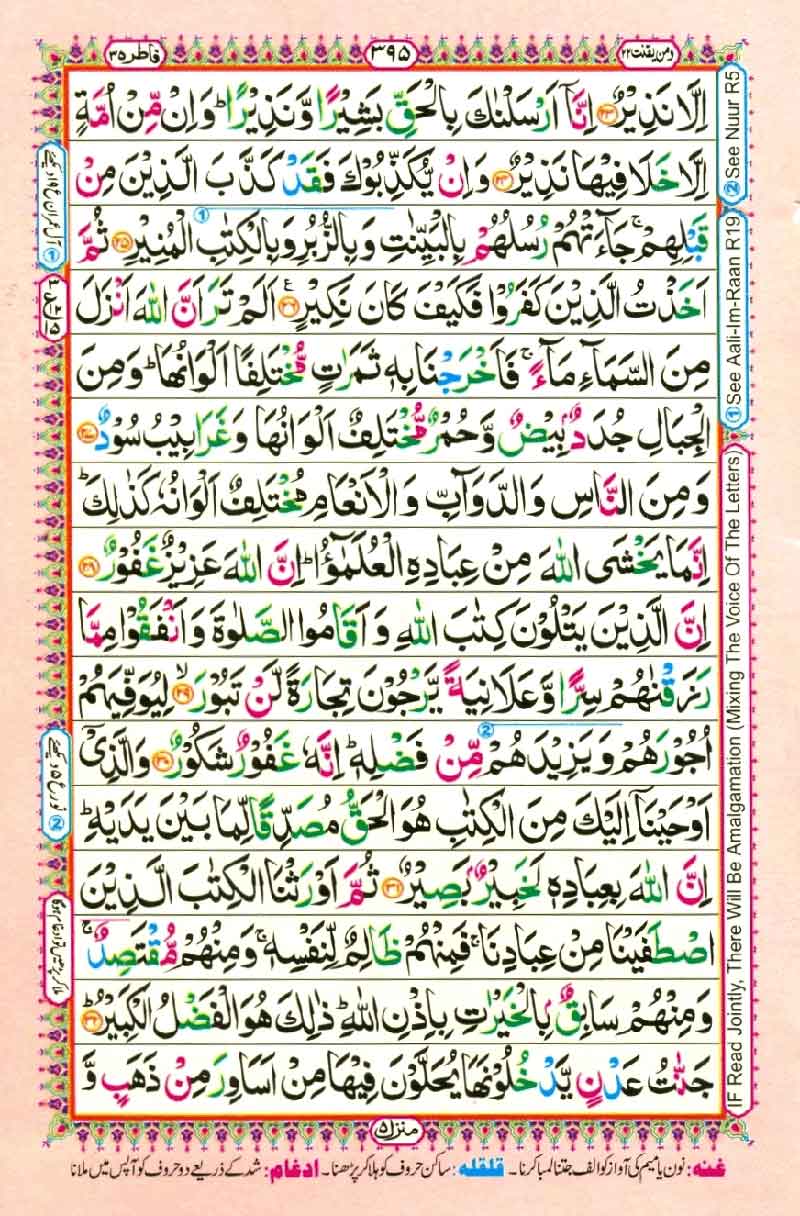 ومن یقنت ۲۲
۳۹۵
فاطر ۳۵
اِلَّا نَذِیْرٌ ﴿۲۳﴾ اِنَّاۤ اَرْسَلْنٰكَ بِالْحَقِّ بَشِیْرًا وَّ نَذِیْرًا ؕ وَ اِنْ مِّنْ اُمَّةٍ
اِلَّا خَلَا فِیْهَا نَذِیْرٌ ﴿۲۴﴾ وَ اِنْ یُّكَذِّبُوْكَ فَقَدْ كَذَّبَ الَّذِیْنَ مِنْ
قَبْلِهِمْ ۚ جَآءَتْهُمْ رُسُلُهُمْ بِالْبَیِّنٰتِ وَ بِالزُّبُرِ وَ بِالْكِتٰبِ الْمُنِیْرِ ﴿۲۵﴾ ثُمَّ
اَخَذْتُ الَّذِیْنَ كَفَرُوْا فَكَیْفَ كَانَ نَكِیْرِ ﴿۲۶﴾ اَلَمْ تَرَ اَنَّ اللّٰهَ اَنْزَلَ
مِنَ السَّمَآءِ مَآءً ۚ فَاَخْرَجْنَا بِهٖ ثَمَرٰتٍ مُّخْتَلِفًا اَلْوَانُهَا ؕ وَ مِنَ
الْجِبَالِ جُدَدٌۢ بِیْضٌ وَّ حُمْرٌ مُّخْتَلِفٌ اَلْوَانُهَا وَ غَرَابِیْبُ سُوْدٌ ﴿۲۷﴾
وَ مِنَ النَّاسِ وَ الدَّوَآبِّ وَ الْاَنْعَامِ مُخْتَلِفٌ اَلْوَانُهٗ كَذٰلِكَ ؕ
اِنَّمَا یَخْشَی اللّٰهَ مِنْ عِبَادِهِ الْعُلَمٰٓؤُا ؕ اِنَّ اللّٰهَ عَزِیْزٌ غَفُوْرٌ ﴿۲۸﴾
اِنَّ الَّذِیْنَ یَتْلُوْنَ كِتٰبَ اللّٰهِ وَ اَقَامُوا الصَّلٰوةَ وَ اَنْفَقُوْا مِمَّا
رَزَقْنٰهُمْ سِرًّا وَّ عَلَانِیَةً یَّرْجُوْنَ تِجَارَةً لَّنْ تَبُوْرَ ﴿۲۹﴾ۙ لِیُوَفِّیَهُمْ
اُجُوْرَهُمْ وَ یَزِیْدَهُمْ مِّنْ فَضْلِهٖ ؕ اِنَّهٗ غَفُوْرٌ شَكُوْرٌ ﴿۳۰﴾ وَ الَّذِیْۤ
اَوْحَیْنَاۤ اِلَیْكَ مِنَ الْكِتٰبِ هُوَ الْحَقُّ مُصَدِّقًا لِّمَا بَیْنَ یَدَیْهِ ؕ
اِنَّ اللّٰهَ بِعِبَادِهٖ لَخَبِیْرٌۢ بَصِیْرٌ ﴿۳۱﴾ ثُمَّ اَوْرَثْنَا الْكِتٰبَ الَّذِیْنَ
اصْطَفَیْنَا مِنْ عِبَادِنَا ۚ فَمِنْهُمْ ظَالِمٌ لِّنَفْسِهٖ ۚ وَ مِنْهُمْ مُّقْتَصِدٌ ۚ
وَ مِنْهُمْ سَابِقٌۢ بِالْخَیْرٰتِ بِاِذْنِ اللّٰهِ ؕ ذٰلِكَ هُوَ الْفَضْلُ الْكَبِیْرُ ﴿۳۲﴾ؕ
جَنّٰتُ عَدْنٍ یَّدْخُلُوْنَهَا یُحَلَّوْنَ فِیْهَا مِنْ اَسَاوِرَ مِنْ ذَهَبٍ وَّ
منزل ۵
غنه: نون یا میم کی آواز کو الف جتنا لمبا کرنا۔ قلقله: ساکن حروف کو ہلا کر پڑھنا۔ ادغام: شد کے ذریعے دو حروف کو آپس میں ملانا
IF Read Jointly, There Will Be Amalgamation (Mixing The Voice Of The Letters) ① See Aali-Im-Raan R19 ② See Nuur R5